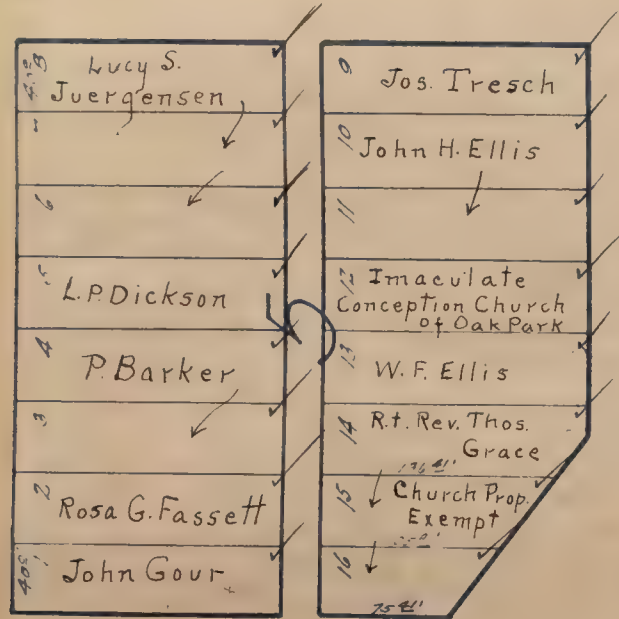 8
Lucy S.
Juergensen
6
5
L.P. Dickson
4
P. Barker
3
2
Rosa G. Fassett
John Gour
5
9
Jos. Tresch
10
John H. Ellis
11
12
Imaculate
Conception Church
of Oak Park
13
W. F. Ellis
14
R.t. Rev. Thos.
Grace
15
Church Prop.
Exempt
16